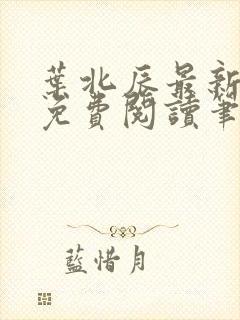 葉北辰最新
免費閱讀筆
藍惜月